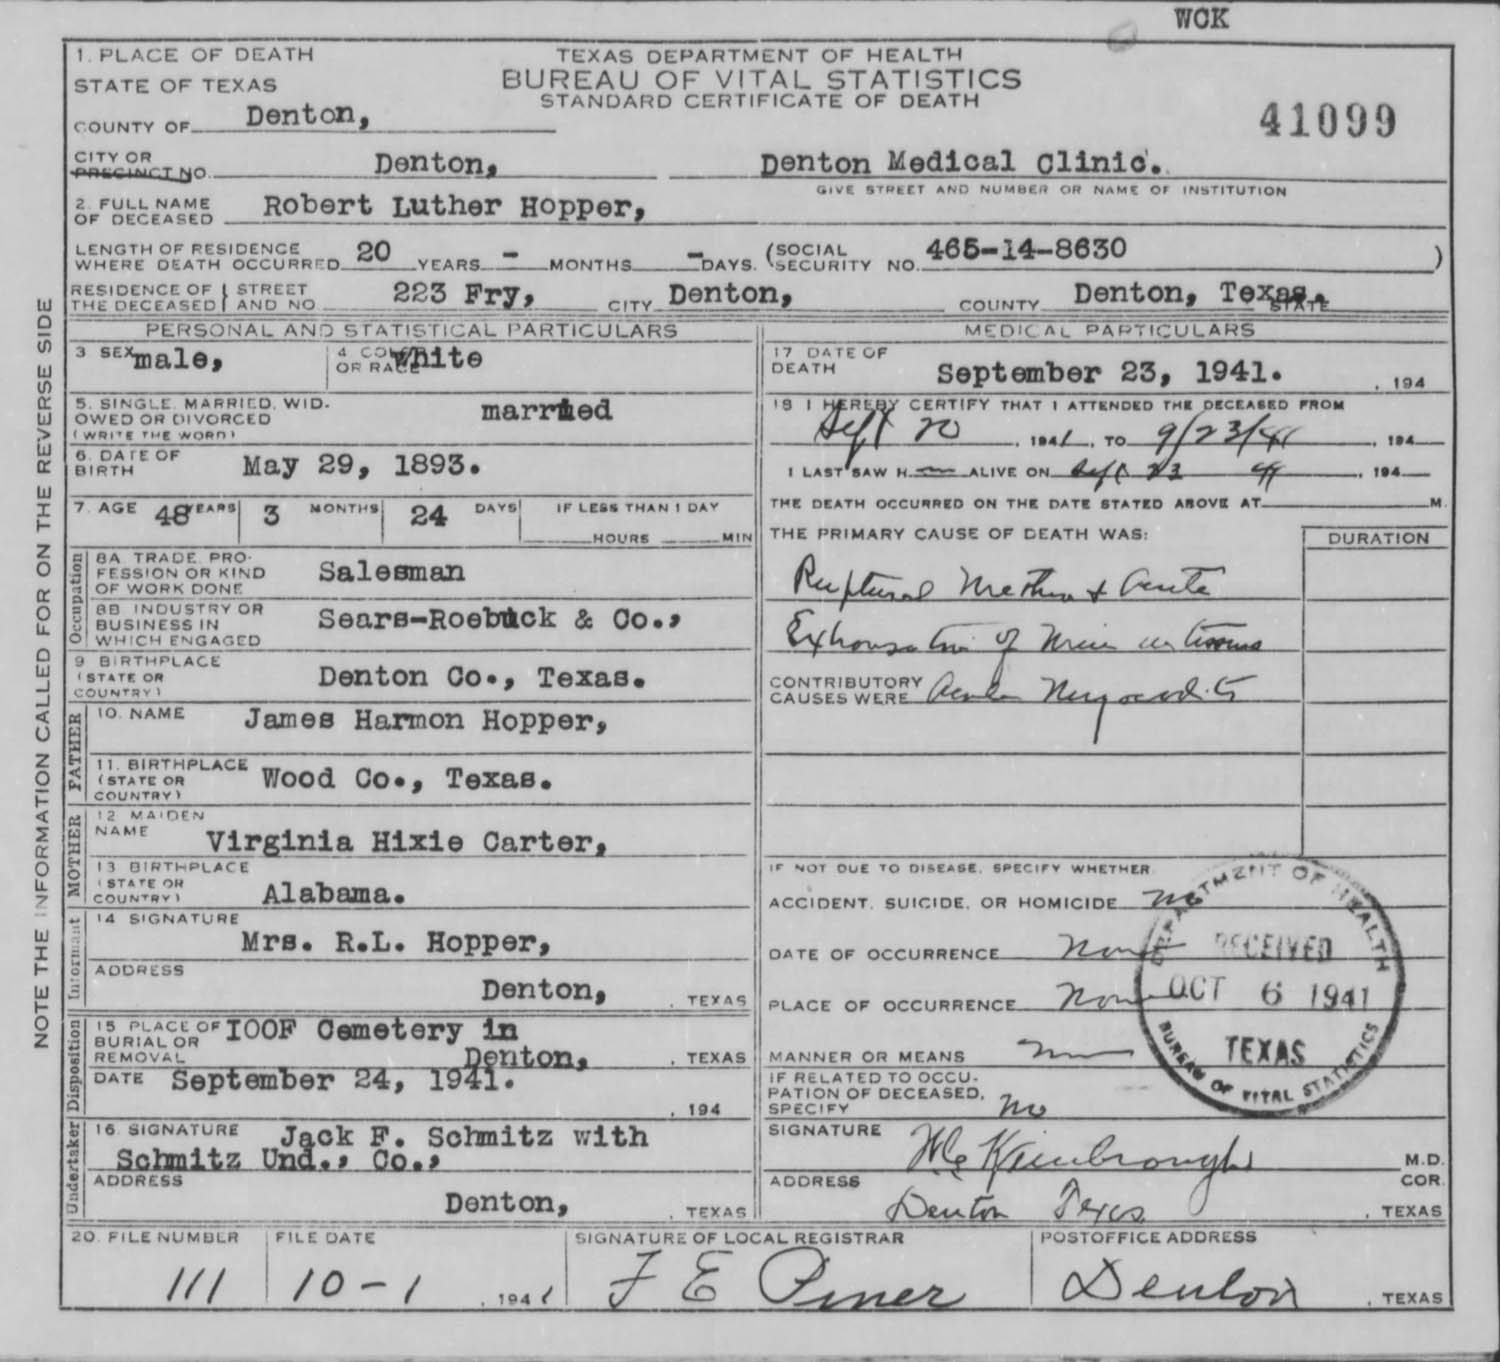 WCK
1. PLACE OF DEATH
STATE OF TEXAS
COUNTY OF Denton,
TEXAS DEPARTMENT OF HEALTH
BUREAU OF VITAL STATISTICS
STANDARD CERTIFICATE OF DEATH
41099
CITY OR
PRECINCT NO. Denton, Denton Medical Clinic.
GIVE STREET AND NUMBER OR NAME OF INSTITUTION
2. FULL NAME
OF DECEASED Robert Luther Hopper,
LENGTH OF RESIDENCE
WHERE DEATH OCCURRED 20 YEARS - MONTHS - DAYS. (SOCIAL SECURITY NO. 465-14-8630 )
RESIDENCE OF THE DECEASED } STREET AND NO. 223 Fry, CITY Denton, COUNTY Denton, Texas. STATE
NOTE THE INFORMATION CALLED FOR ON THE REVERSE SIDE
PERSONAL AND STATISTICAL PARTICULARS
3 SEX male, 4 COLOR OR RACE White
5. SINGLE, MARRIED, WID-
OWED OR DIVORCED married
(WRITE THE WORD)
6. DATE OF
BIRTH May 29, 1893.
7. AGE 48 YEARS 3 MONTHS 24 DAYS IF LESS THAN 1 DAY
HOURS MIN
Occupation
8A TRADE, PRO-
FESSION OR KIND Salesman
OF WORK DONE
8B INDUSTRY OR
BUSINESS IN Sears-Roebuck & Co.,
WHICH ENGAGED
9 BIRTHPLACE
(STATE OR Denton Co., Texas.
COUNTRY)
FATHER
10. NAME James Harmon Hopper,
11. BIRTHPLACE
(STATE OR Wood Co., Texas.
COUNTRY)
MOTHER
12 MAIDEN
NAME Virginia Hixie Carter,
13 BIRTHPLACE
(STATE OR
COUNTRY) Alabama.
Informant
14 SIGNATURE
Mrs. R.L. Hopper,
ADDRESS
Denton, , TEXAS
Disposition
15 PLACE OF IOOF Cemetery in
BURIAL OR
REMOVAL Denton, , TEXAS
DATE September 24, 1941.
, 194
Undertaker
16. SIGNATURE Jack F. Schmitz with
Schmitz Und., Co.,
ADDRESS
Denton, , TEXAS
MEDICAL PARTICULARS
17 DATE OF
DEATH September 23, 1941. , 194
18 I HEREBY CERTIFY THAT I ATTENDED THE DECEASED FROM
Sept 20 , 1941, TO 9/23/41 , 194
I LAST SAW H ALIVE ON Sept 23 41 , 194
THE DEATH OCCURRED ON THE DATE STATED ABOVE AT M.
THE PRIMARY CAUSE OF DEATH WAS: DURATION
Acute
of
CONTRIBUTORY
CAUSES WERE Myocarditis
IF NOT DUE TO DISEASE, SPECIFY WHETHER
ACCIDENT, SUICIDE, OR HOMICIDE No
DATE OF OCCURRENCE None
PLACE OF OCCURRENCE None
MANNER OR MEANS
IF RELATED TO OCCU-
PATION OF DECEASED,
SPECIFY No
DEPARTMENT OF HEALTH
RECEIVED
OCT 6 1941
TEXAS
BUREAU OF VITAL STATISTICS
SIGNATURE Kimbrough M.D.
COR.
ADDRESS
Denton Texas , TEXAS
20. FILE NUMBER FILE DATE SIGNATURE OF LOCAL REGISTRAR POSTOFFICE ADDRESS
111 10-1 , 1941 F E Piner Denton , TEXAS